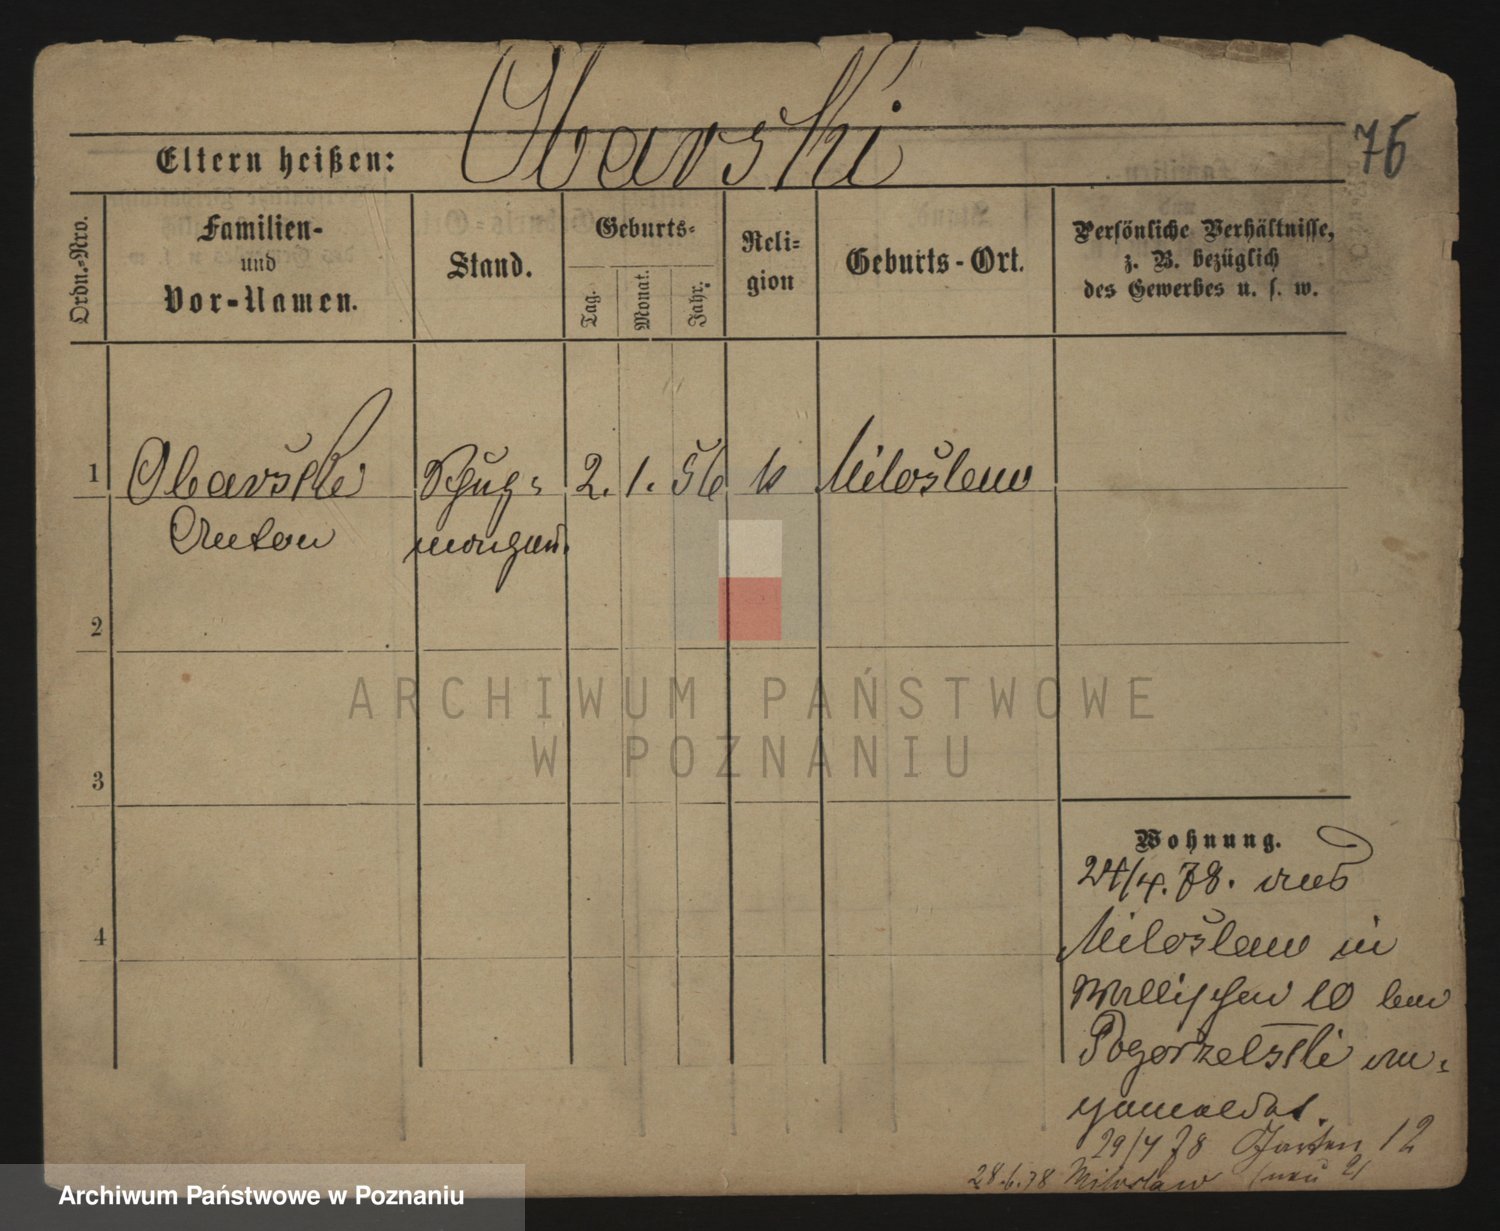 Obarski
76
Eltern heißen:
Ordn.-Nro.
Familien-
und
Vor-Namen.
Stand.
Geburts-
Tag.
Monat.
Jahr.
Reli-
gion
Geburts-Ort.
Persönliche Verhältnisse,
z. B. bezüglich
des Gewerbes u. s. w.
1 Obarski 2. 1. 56 k Miloslaw
Anton
2
3
4
ARCHIWUM PAŃSTWOWE
W POZNANIU
Wohnung.
24/4. 78. aus
Miloslaw in
Wallischei 10 bei
Pogorzelski an-
gemeldet.
29/4 78 Garten 12
28.6.78 Miloslaw
Archiwum Państwowe w Poznaniu